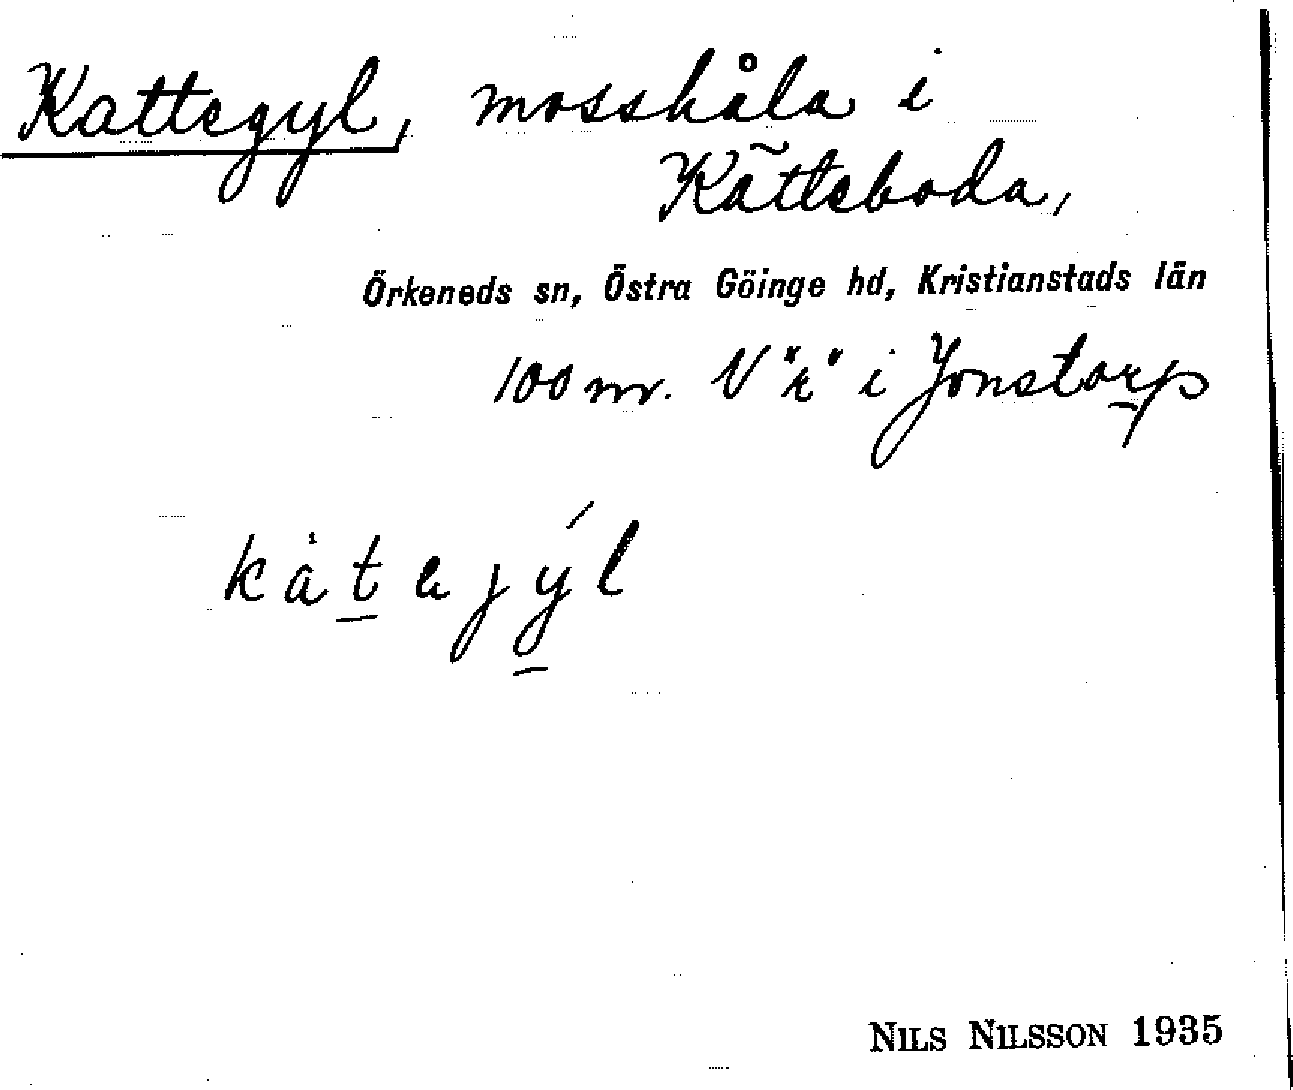 Kattegyl, mosshåla i
Kätteboda,
Örkeneds sn, Östra Göinge hd, Kristianstads län
100 m. V "k" i Jonstorp
kàtejýl
NILS NILSSON 1935